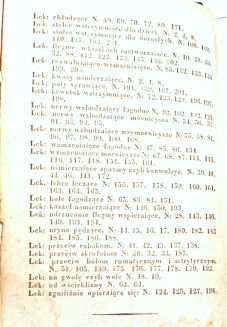 Lek: chłodzące N. 49, 69, 70, 72, 89, 171.
Lek: stolec wstrzymujące dla dzieci N. 2, 4, 8.
Lek: stolec wstrzymujące dla dorosłych. N. 108, 109,
110, 127, 153, 2-1.
Lek: flegmę w kiszkach roztwarzające. N. 10, 28, 30,
32, 88, 112, 122, 123, 135, 136, 202.
Lek: rozwalniająco-wzmacniające. N. 85, 132, 133,
199, 203.
Lek: kwasy uśmierzające. N. 2, 4, 8.
Lek: poty sprawiące. N. 101, 139, 167, 201.
Lek: krwotok wstrzymujące. N. 72, 125, 129, 196, 197,
198.
Lek: nerwy wzbudzające łagodne N. 93, 102, 122, 123,
Lek: nerwy wzbudzające mocniejsze N. 51, 56, 57,
91, 93, 94, 95.
Lek: nerwy wzbudzające najmocniejsze N. 55, 58, 84,
96, 97, 98, 99, 100, 168.
Lek: wzmacniające łagodne N. 47, 85, 86, 134.
Lek: wzmacniające mocniejsze N. 67, 68, 87, 114, 115,
116, 117, 118, 154, 155, 161.
Lek: uśmierzające spazmy czyli konwulsye. N. 39, 40,
44, 46, 141, 172.
Lek: febrę leczące N. 156, 157, 158, 159, 160, 161,
163, 164, 165.
Lek: bole łagodzące N. 65, 83, 84, 151.
Lek: kaszel uśmierzające N. 146, 150, 193.
Lek: odrzucanie flegmy wspierające. N. 28, 143, 146,
149, 193, 194.
Lek: urynę pędzące. N. 14, 15, 16, 17, 180, 182, 183
184, 185, 186, 188.
Lek: przeciw robakom. N. 41, 42, 43, 137, 138.
Lek: przeciw skrofułom N. 30, 32, 33, 187.
Lek: przeciw bólom rumatycznym i artrytycznym.
N. 54, 105, 139, 175, 176, 177, 178, 179, 192.
Lek: na gwole czyli wole N. 18, 19.
Lek: od wścieklizny N. 63, 64.
Lek: zgniliźnie opierające się: N. 124, 125, 127, 198.